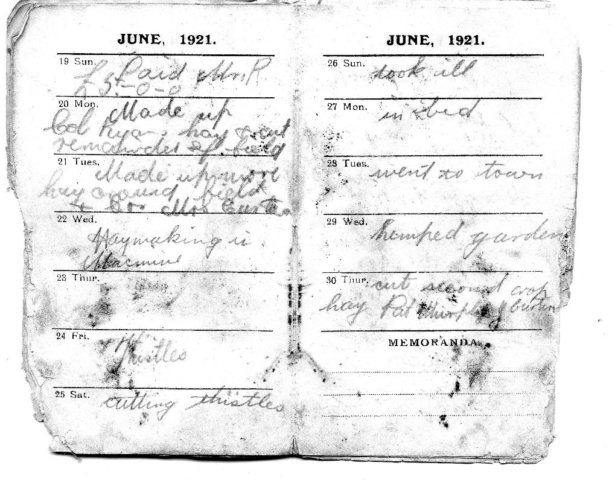 JUNE, 1921.
19 Sun.
Paid Mr. R
£3-0-0
20 Mon.
Made up
Col Ryans hay & cut
remainder of field
21 Tues.
Made up more
hay around field
& Mrs
22 Wed.
Haymaking in
23 Thur.
24 Fri.
Thistles
25 Sat.
cutting thistles
JUNE, 1921.
26 Sun.
took ill
27 Mon.
in bed
28 Tues.
went to town
29 Wed.
garden
30 Thur.
cut second crop
hay Pat Murphy
MEMORANDA.